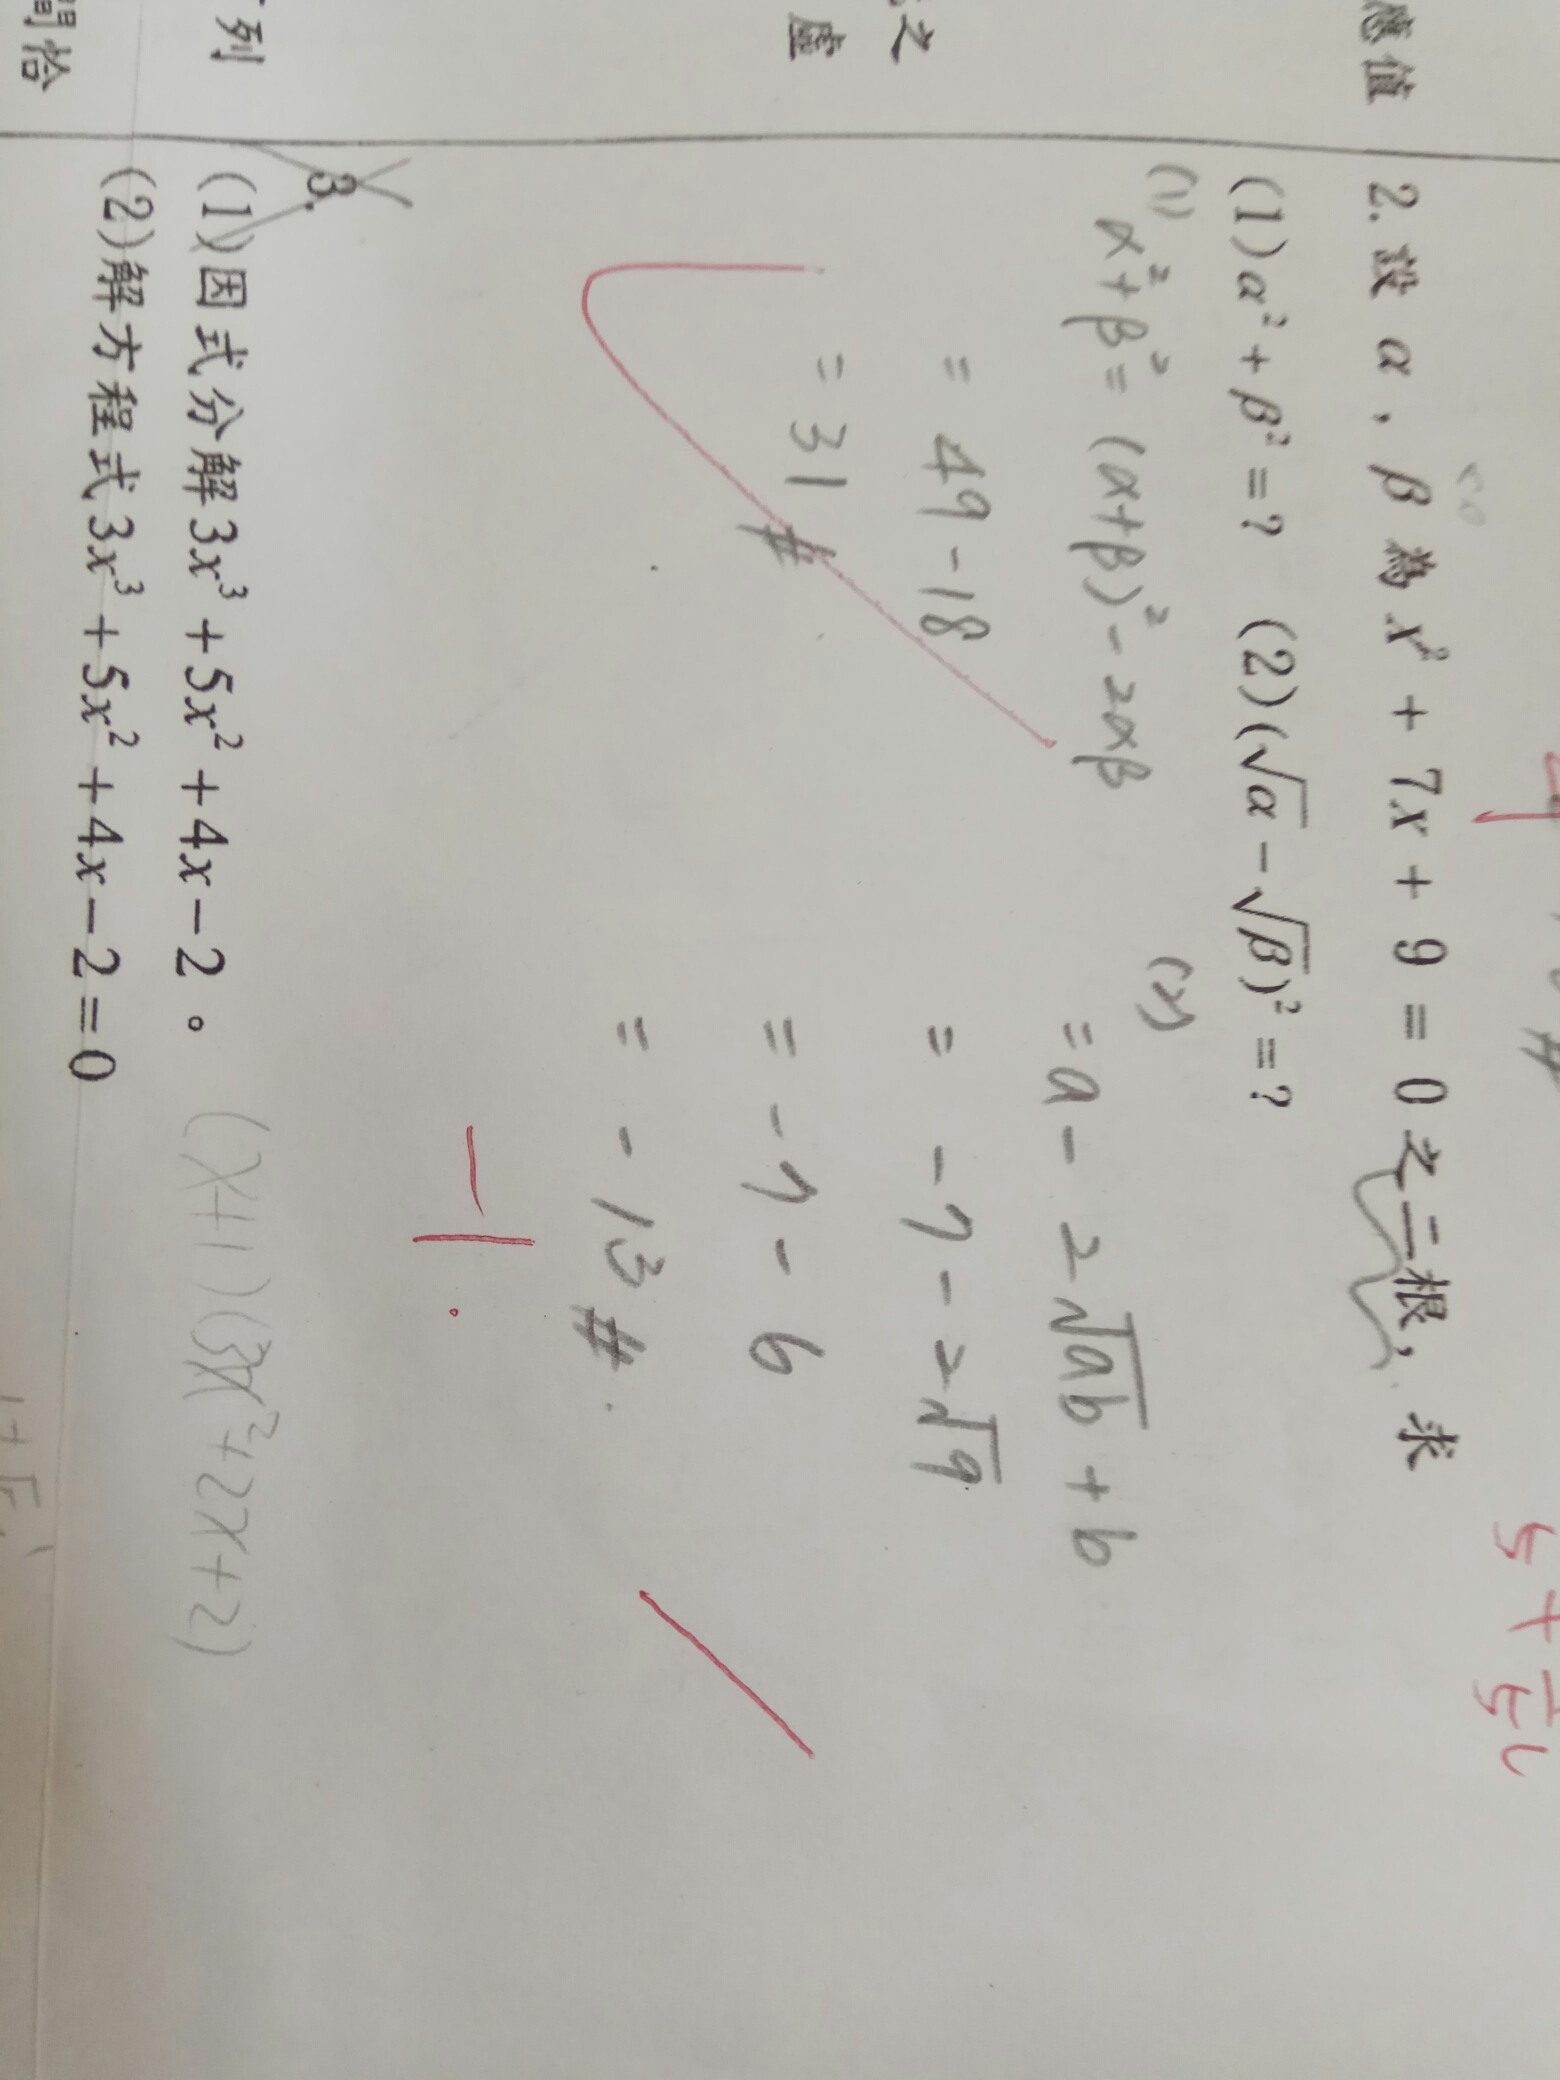 應值
之
虛
列
間恰
2. 設 α , β 為 x² + 7x + 9 = 0 之二根, 求
(1) α² + β² = ? (2) (√α - √β)² = ?
(1)
α² + β² = (α+β)² - 2αβ
= 49 - 18
= 31 #
(2)
= a - 2√ab + b
= -7 - 2√9
= -7 - 6
= -13 #
-1
3.
(1)因式分解3x³+5x²+4x-2。
(x+1)(3x²+2x+2)
(2)解方程式3x³+5x²+4x-2=0